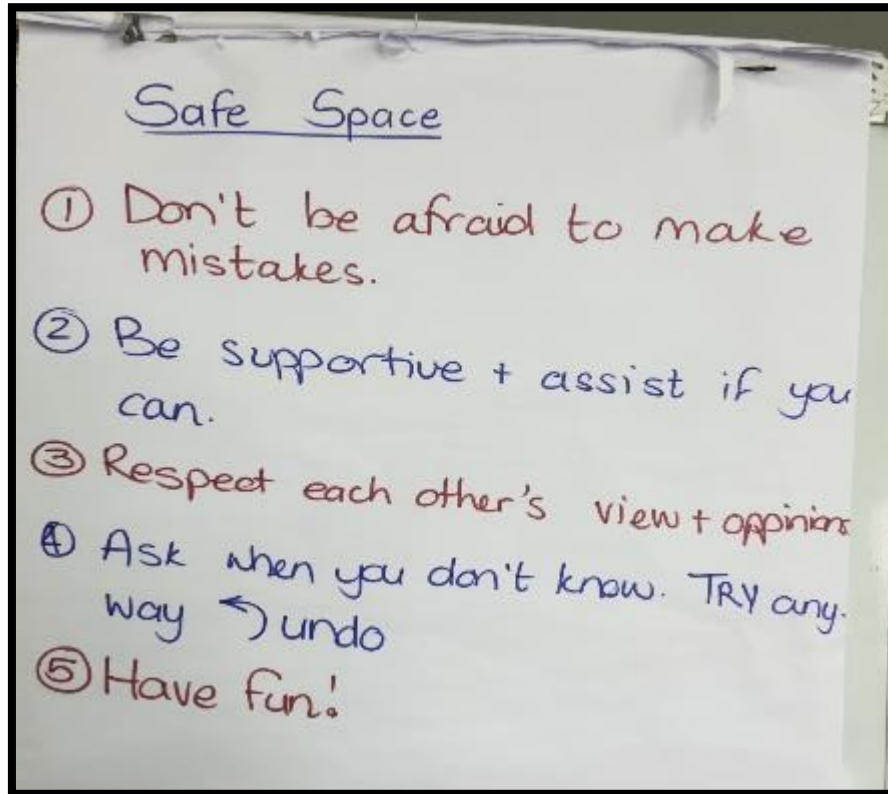 Safe Space
① Don't be afraid to make
mistakes.
② Be supportive + assist if you
can.
③ Respect each other's view + oppinions
④ Ask when you don't know. TRY any.
way ↶ undo
⑤ Have fun!